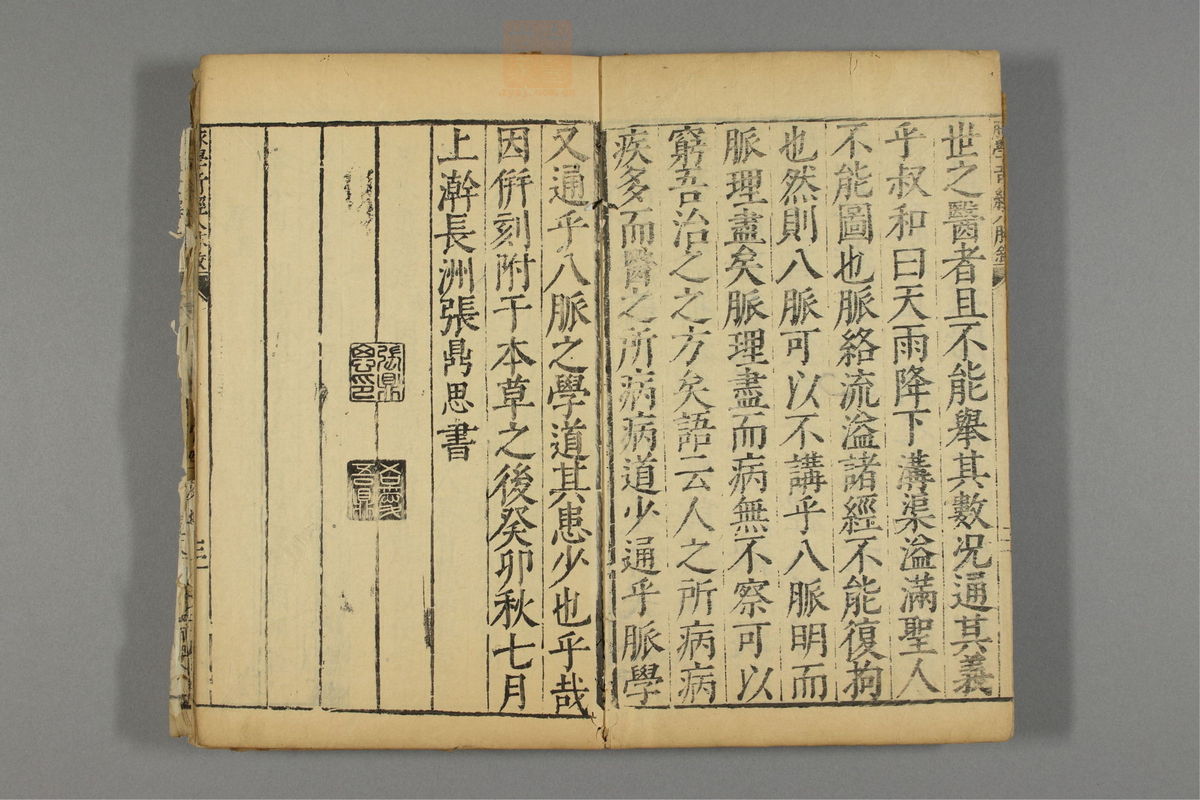 世之醫者且不能舉其數况通其義
乎叔和曰天雨降下溝渠溢滿聖人
不能圖也脈絡流溢諸經不能復拘
也然則八脈可以不講乎八脈明而
脈理盡矣脈理盡而病無不察可以
窮吾治之之方矣語云人之所病病
疾多而醫之所病病道少通乎脈學
又通乎八脈之學道其患少也乎哉
因倂刻附于本草之後癸卯秋七月
上澣長洲張鼎思書
張鼎思印